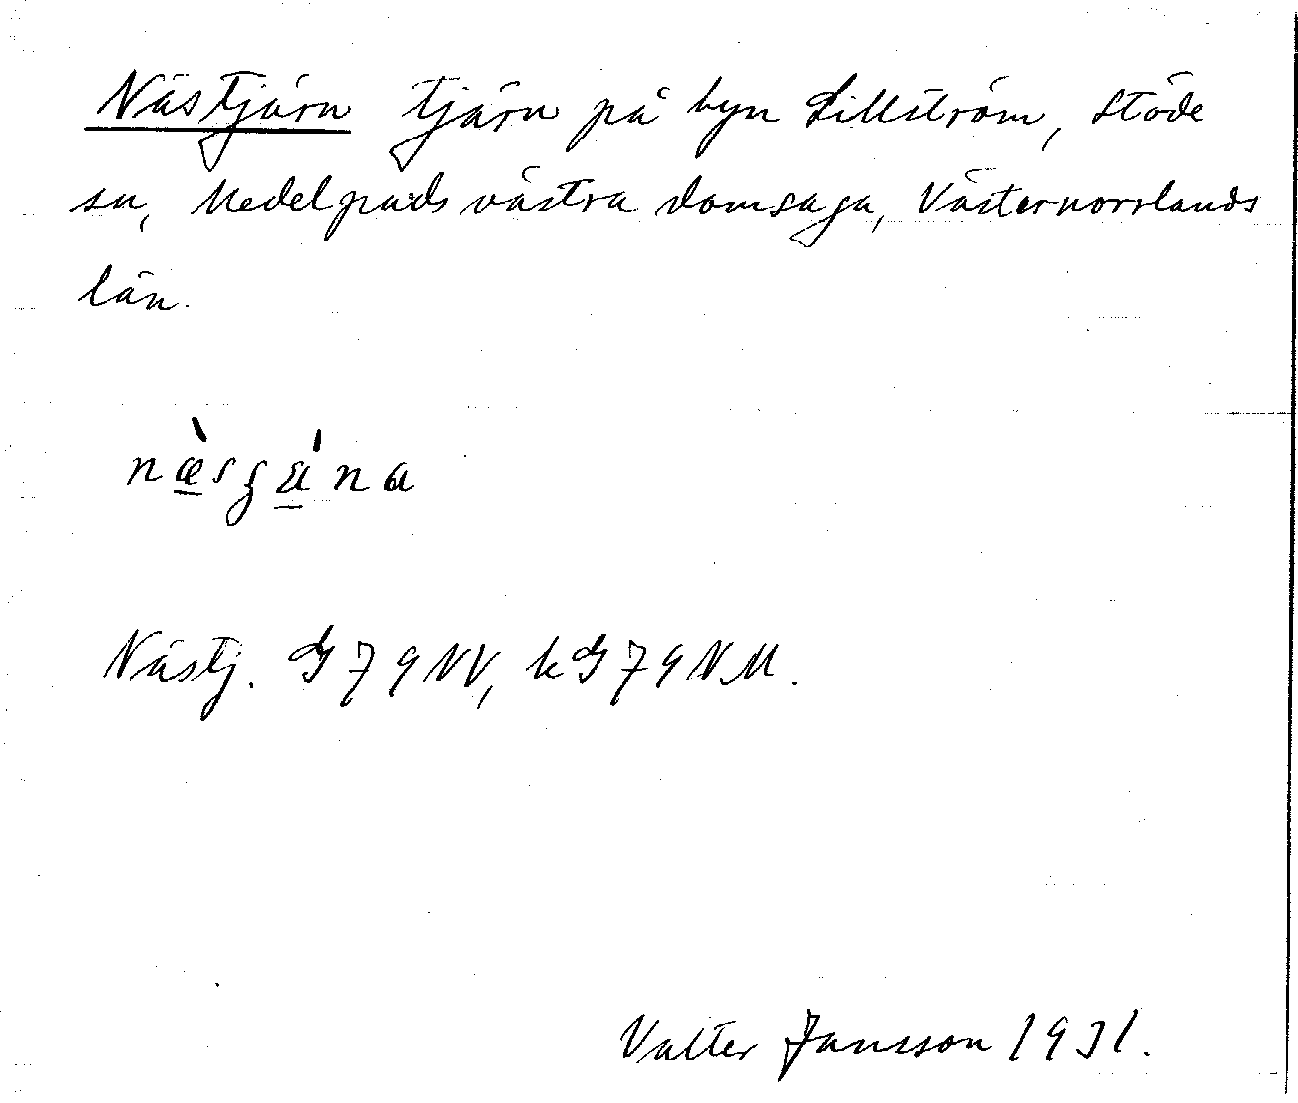 Nästjärn tjärn på byn Lillström, Stöde
sn, Medelpads västra domsaga, Västernorrlands
län.
Nästj. G 79 NV, kG 79 NM.
Valter Jansson 1931.